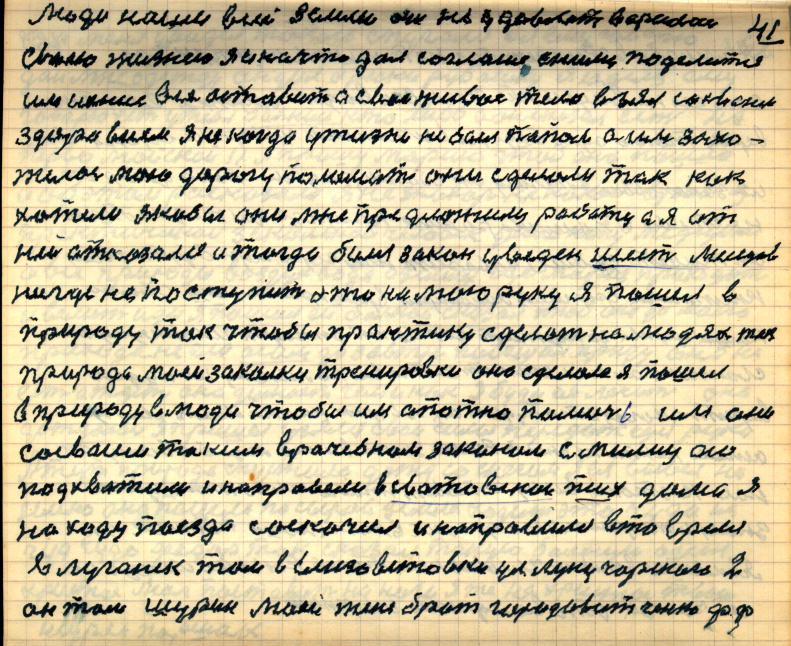 41
люди наши всей земли он не удовлет
свою жизнею я на что дал соглаше сними поделится
им оставит а свое живое тело взял
здоровием я некогда у жизни не был а им захо-
желос мою дорогу поломать они сделали так как
хотели якобы они мне предложили работу а я от
ней отказалс и тогда был закон уведен шест месяцов
негде не поступит это на мою руку я пошел в
природу так чтобы практику сделат на людях так
природа моей закалки тренировки оно сделала я пошел
в природу в люди чтобы им помочь им они
таким врачебном законом с милиц
подхватили и направели в сватовскою псих дома я
на ходу поезда соскочил и направилс в то время
в Луганск там в Елизоветовки ул. Луночарского 2
он там шурин моей жене брат городовитченко ф.ф